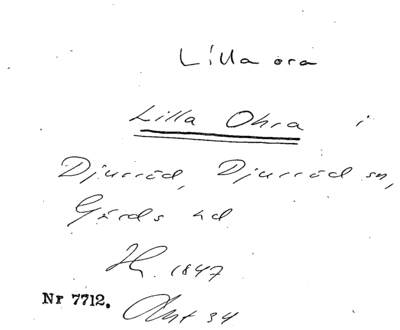 Lilla öra
Lilla Ohra i
Djurröd, Djurröd sn,
Gärds hd
H. 1847
Nr 7712. Akt 34